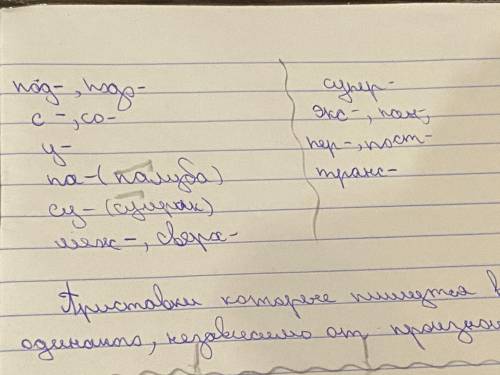 под-, подо-
с-, со-
у-
па-(палуба)
су-(сумрак)
меж-, сверх-
супер-
экс-, пан-,
пер-, пост-
транс-
Приставки которые пишутся в
одинаково, независимо от произно